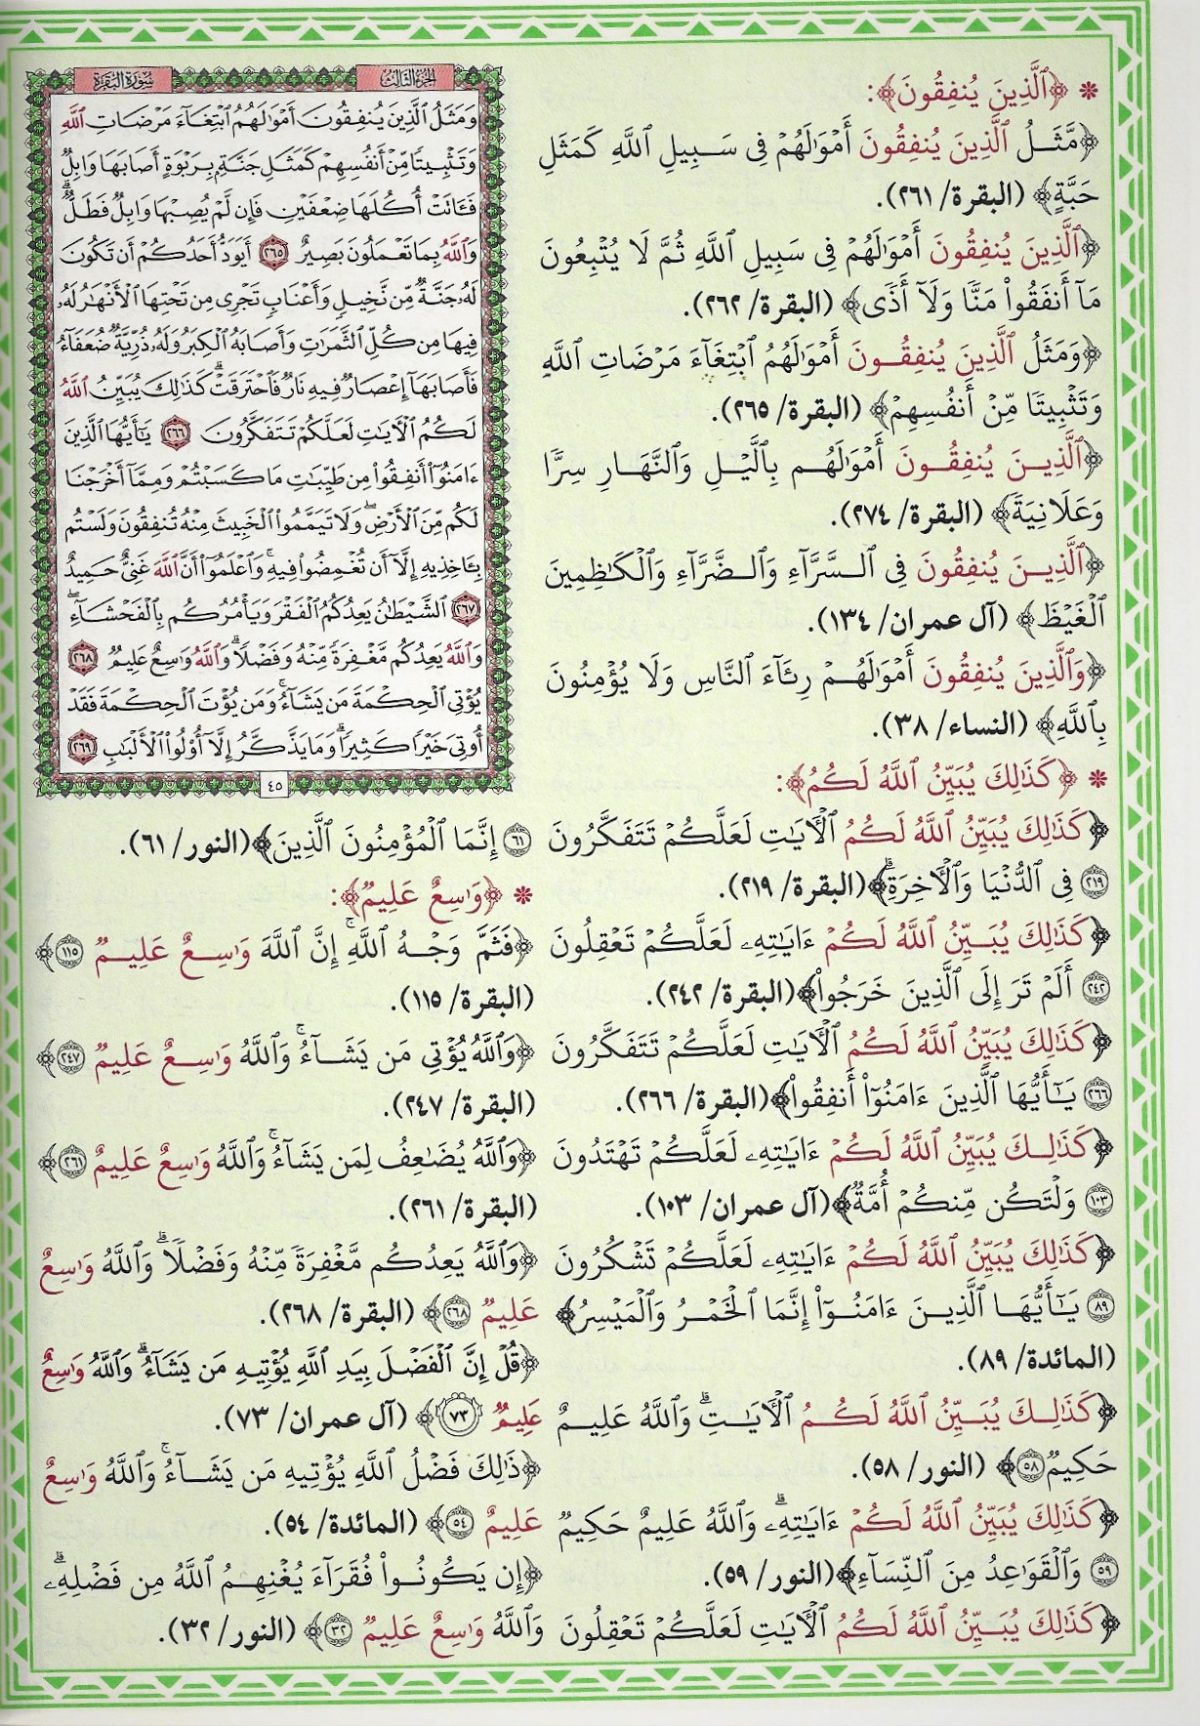 * ﴿ٱلَّذِينَ يُنفِقُونَ﴾:
﴿مَّثَلُ ٱلَّذِينَ يُنفِقُونَ أَمۡوَٰلَهُمۡ فِي سَبِيلِ ٱللَّهِ كَمَثَلِ
حَبَّةٍ﴾ (البقرة/ ٢٦١).
﴿ٱلَّذِينَ يُنفِقُونَ أَمۡوَٰلَهُمۡ فِي سَبِيلِ ٱللَّهِ ثُمَّ لَا يُتۡبِعُونَ
مَآ أَنفَقُواْ مَنّٗا وَلَآ أَذٗى﴾ (البقرة/ ٢٦٢).
﴿وَمَثَلُ ٱلَّذِينَ يُنفِقُونَ أَمۡوَٰلَهُمُ ٱبۡتِغَآءَ مَرۡضَاتِ ٱللَّهِ
وَتَثۡبِيتٗا مِّنۡ أَنفُسِهِمۡ﴾ (البقرة/ ٢٦٥).
﴿ٱلَّذِينَ يُنفِقُونَ أَمۡوَٰلَهُم بِٱلَّيۡلِ وَٱلنَّهَارِ سِرّٗا
وَعَلَانِيَةٗ﴾ (البقرة/ ٢٧٤).
﴿ٱلَّذِينَ يُنفِقُونَ فِي ٱلسَّرَّآءِ وَٱلضَّرَّآءِ وَٱلۡكَٰظِمِينَ
ٱلۡغَيۡظَ﴾ (آل عمران/ ١٣٤).
﴿وَٱلَّذِينَ يُنفِقُونَ أَمۡوَٰلَهُمۡ رِئَآءَ ٱلنَّاسِ وَلَا يُؤۡمِنُونَ
بِٱللَّهِ﴾ (النساء/ ٣٨).
* ﴿كَذَٰلِكَ يُبَيِّنُ ٱللَّهُ لَكُمُ﴾:
﴿كَذَٰلِكَ يُبَيِّنُ ٱللَّهُ لَكُمُ ٱلۡأٓيَٰتِ لَعَلَّكُمۡ تَتَفَكَّرُونَ
٢١٩ فِي ٱلدُّنۡيَا وَٱلۡأٓخِرَةِۗ﴾(البقرة/ ٢١٩).
﴿كَذَٰلِكَ يُبَيِّنُ ٱللَّهُ لَكُمۡ ءَايَٰتِهِۦ لَعَلَّكُمۡ تَعۡقِلُونَ
٢٤٢ أَلَمۡ تَرَ إِلَى ٱلَّذِينَ خَرَجُواْ﴾(البقرة/ ٢٤٢).
﴿كَذَٰلِكَ يُبَيِّنُ ٱللَّهُ لَكُمُ ٱلۡأٓيَٰتِ لَعَلَّكُمۡ تَتَفَكَّرُونَ
٢٦٦ يَٰٓأَيُّهَا ٱلَّذِينَ ءَامَنُوٓاْ أَنفِقُواْ﴾(البقرة/ ٢٦٦).
﴿كَذَٰلِكَ يُبَيِّنُ ٱللَّهُ لَكُمۡ ءَايَٰتِهِۦ لَعَلَّكُمۡ تَهۡتَدُونَ
١٠٣ وَلۡتَكُن مِّنكُمۡ أُمَّةٞ﴾(آل عمران/ ١٠٣).
﴿كَذَٰلِكَ يُبَيِّنُ ٱللَّهُ لَكُمۡ ءَايَٰتِهِۦ لَعَلَّكُمۡ تَشۡكُرُونَ
٨٩ يَٰٓأَيُّهَا ٱلَّذِينَ ءَامَنُوٓاْ إِنَّمَا ٱلۡخَمۡرُ وَٱلۡمَيۡسِرُ﴾
(المائدة/ ٨٩).
﴿كَذَٰلِكَ يُبَيِّنُ ٱللَّهُ لَكُمُ ٱلۡأٓيَٰتِۗ وَٱللَّهُ عَلِيمٌ
حَكِيمٞ ٥٨﴾ (النور/ ٥٨).
﴿كَذَٰلِكَ يُبَيِّنُ ٱللَّهُ لَكُمۡ ءَايَٰتِهِۦۗ وَٱللَّهُ عَلِيمٌ حَكِيمٞ
٥٩ وَٱلۡقَوَٰعِدُ مِنَ ٱلنِّسَآءِ﴾(النور/ ٥٩).
﴿كَذَٰلِكَ يُبَيِّنُ ٱللَّهُ لَكُمُ ٱلۡأٓيَٰتِ لَعَلَّكُمۡ تَعۡقِلُونَ
الجزء الثالث
سورة البقرة
وَمَثَلُ ٱلَّذِينَ يُنفِقُونَ أَمۡوَٰلَهُمُ ٱبۡتِغَآءَ مَرۡضَاتِ ٱللَّهِ
وَتَثۡبِيتٗا مِّنۡ أَنفُسِهِمۡ كَمَثَلِ جَنَّةِۭ بِرَبۡوَةٍ أَصَابَهَا وَابِلٞ
فَـَٔاتَتۡ أُكُلَهَا ضِعۡفَيۡنِ فَإِن لَّمۡ يُصِبۡهَا وَابِلٞ فَطَلّٞۗ
وَٱللَّهُ بِمَا تَعۡمَلُونَ بَصِيرٌ ٢٦٥ أَيَوَدُّ أَحَدُكُمۡ أَن تَكُونَ
لَهُۥ جَنَّةٞ مِّن نَّخِيلٖ وَأَعۡنَابٖ تَجۡرِي مِن تَحۡتِهَا ٱلۡأَنۡهَٰرُ لَهُۥ
فِيهَا مِن كُلِّ ٱلثَّمَرَٰتِ وَأَصَابَهُ ٱلۡكِبَرُ وَلَهُۥ ذُرِّيَّةٞ ضُعَفَآءُ
فَأَصَابَهَآ إِعۡصَارٞ فِيهِ نَارٞ فَٱحۡتَرَقَتۡۗ كَذَٰلِكَ يُبَيِّنُ ٱللَّهُ
لَكُمُ ٱلۡأٓيَٰتِ لَعَلَّكُمۡ تَتَفَكَّرُونَ ٢٦٦ يَٰٓأَيُّهَا ٱلَّذِينَ
ءَامَنُوٓاْ أَنفِقُواْ مِن طَيِّبَٰتِ مَا كَسَبۡتُمۡ وَمِمَّآ أَخۡرَجۡنَا
لَكُم مِّنَ ٱلۡأَرۡضِۖ وَلَا تَيَمَّمُواْ ٱلۡخَبِيثَ مِنۡهُ تُنفِقُونَ وَلَسۡتُم
بِـَٔاخِذِيهِ إِلَّآ أَن تُغۡمِضُواْ فِيهِۚ وَٱعۡلَمُوٓاْ أَنَّ ٱللَّهَ غَنِيٌّ حَمِيدٌ
٢٦٧ ٱلشَّيۡطَٰنُ يَعِدُكُمُ ٱلۡفَقۡرَ وَيَأۡمُرُكُم بِٱلۡفَحۡشَآءِۖ
وَٱللَّهُ يَعِدُكُم مَّغۡفِرَةٗ مِّنۡهُ وَفَضۡلٗاۗ وَٱللَّهُ وَٰسِعٌ عَلِيمٞ ٢٦٨
يُؤۡتِي ٱلۡحِكۡمَةَ مَن يَشَآءُۚ وَمَن يُؤۡتَ ٱلۡحِكۡمَةَ فَقَدۡ
أُوتِيَ خَيۡرٗا كَثِيرٗاۗ وَمَا يَذَّكَّرُ إِلَّآ أُوْلُواْ ٱلۡأَلۡبَٰبِ ٢٦٩
٤٥
٦١ إِنَّمَا ٱلۡمُؤۡمِنُونَ ٱلَّذِينَ﴾(النور/ ٦١).
* ﴿وَٰسِعٌ عَلِيمٞ﴾:
﴿فَثَمَّ وَجۡهُ ٱللَّهِۚ إِنَّ ٱللَّهَ وَٰسِعٌ عَلِيمٞ ١١٥﴾
(البقرة/ ١١٥).
﴿وَٱللَّهُ يُؤۡتِي مَن يَشَآءُۚ وَٱللَّهُ وَٰسِعٌ عَلِيمٞ ٢٤٧﴾
(البقرة/ ٢٤٧).
﴿وَٱللَّهُ يُضَٰعِفُ لِمَن يَشَآءُۚ وَٱللَّهُ وَٰسِعٌ عَلِيمٌ ٢٦١﴾
(البقرة/ ٢٦١).
﴿وَٱللَّهُ يَعِدُكُم مَّغۡفِرَةٗ مِّنۡهُ وَفَضۡلٗاۗ وَٱللَّهُ وَٰسِعٌ
عَلِيمٞ ٢٦٨﴾ (البقرة/ ٢٦٨).
﴿قُلۡ إِنَّ ٱلۡفَضۡلَ بِيَدِ ٱللَّهِ يُؤۡتِيهِ مَن يَشَآءُۗ وَٱللَّهُ وَٰسِعٌ
عَلِيمٞ ٧٣﴾ (آل عمران/ ٧٣).
﴿ذَٰلِكَ فَضۡلُ ٱللَّهِ يُؤۡتِيهِ مَن يَشَآءُۚ وَٱللَّهُ وَٰسِعٌ
عَلِيمٌ ٥٤﴾ (المائدة/ ٥٤).
﴿إِن يَكُونُواْ فُقَرَآءَ يُغۡنِهِمُ ٱللَّهُ مِن فَضۡلِهِۦۗ
وَٱللَّهُ وَٰسِعٌ عَلِيمٞ ٣٢﴾ (النور/ ٣٢).